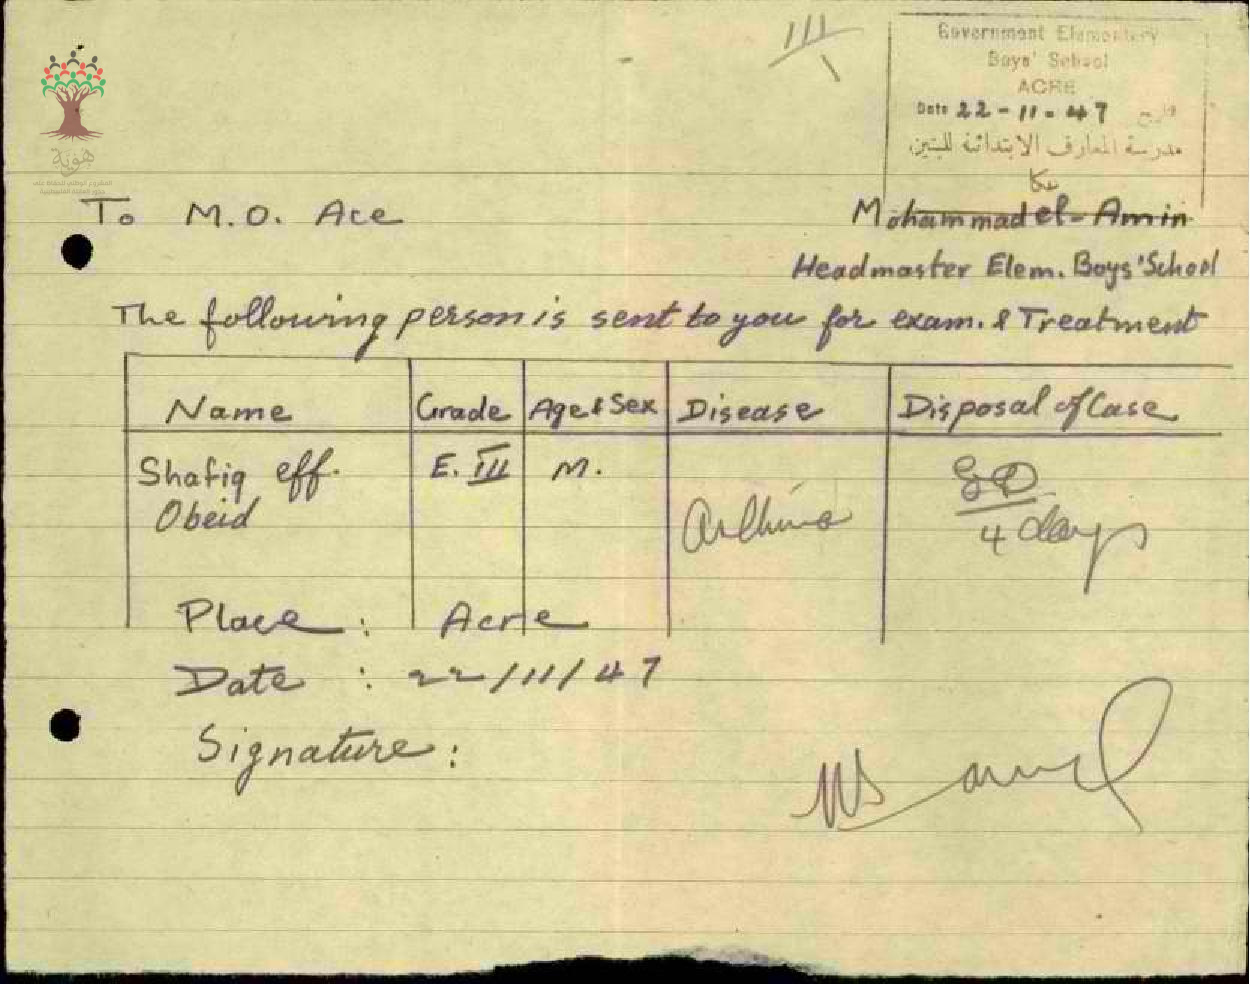 III
Government Elementary
Boys' School
ACRE
Date 22-11-47 تاريخ
مدرسة المعارف الابتدائية للبنين
عكا
هوية
To M.O. Ace
Mohammad el-Amin
Headmaster Elem. Boys' School
The following person is sent to you for exam. & Treatment
Name Grade Age & Sex Disease Disposal of Case
Shafiq eff. Obeid E. III M. Asthma 4 days
Place : Acre
Date : 22/11/47
Signature :